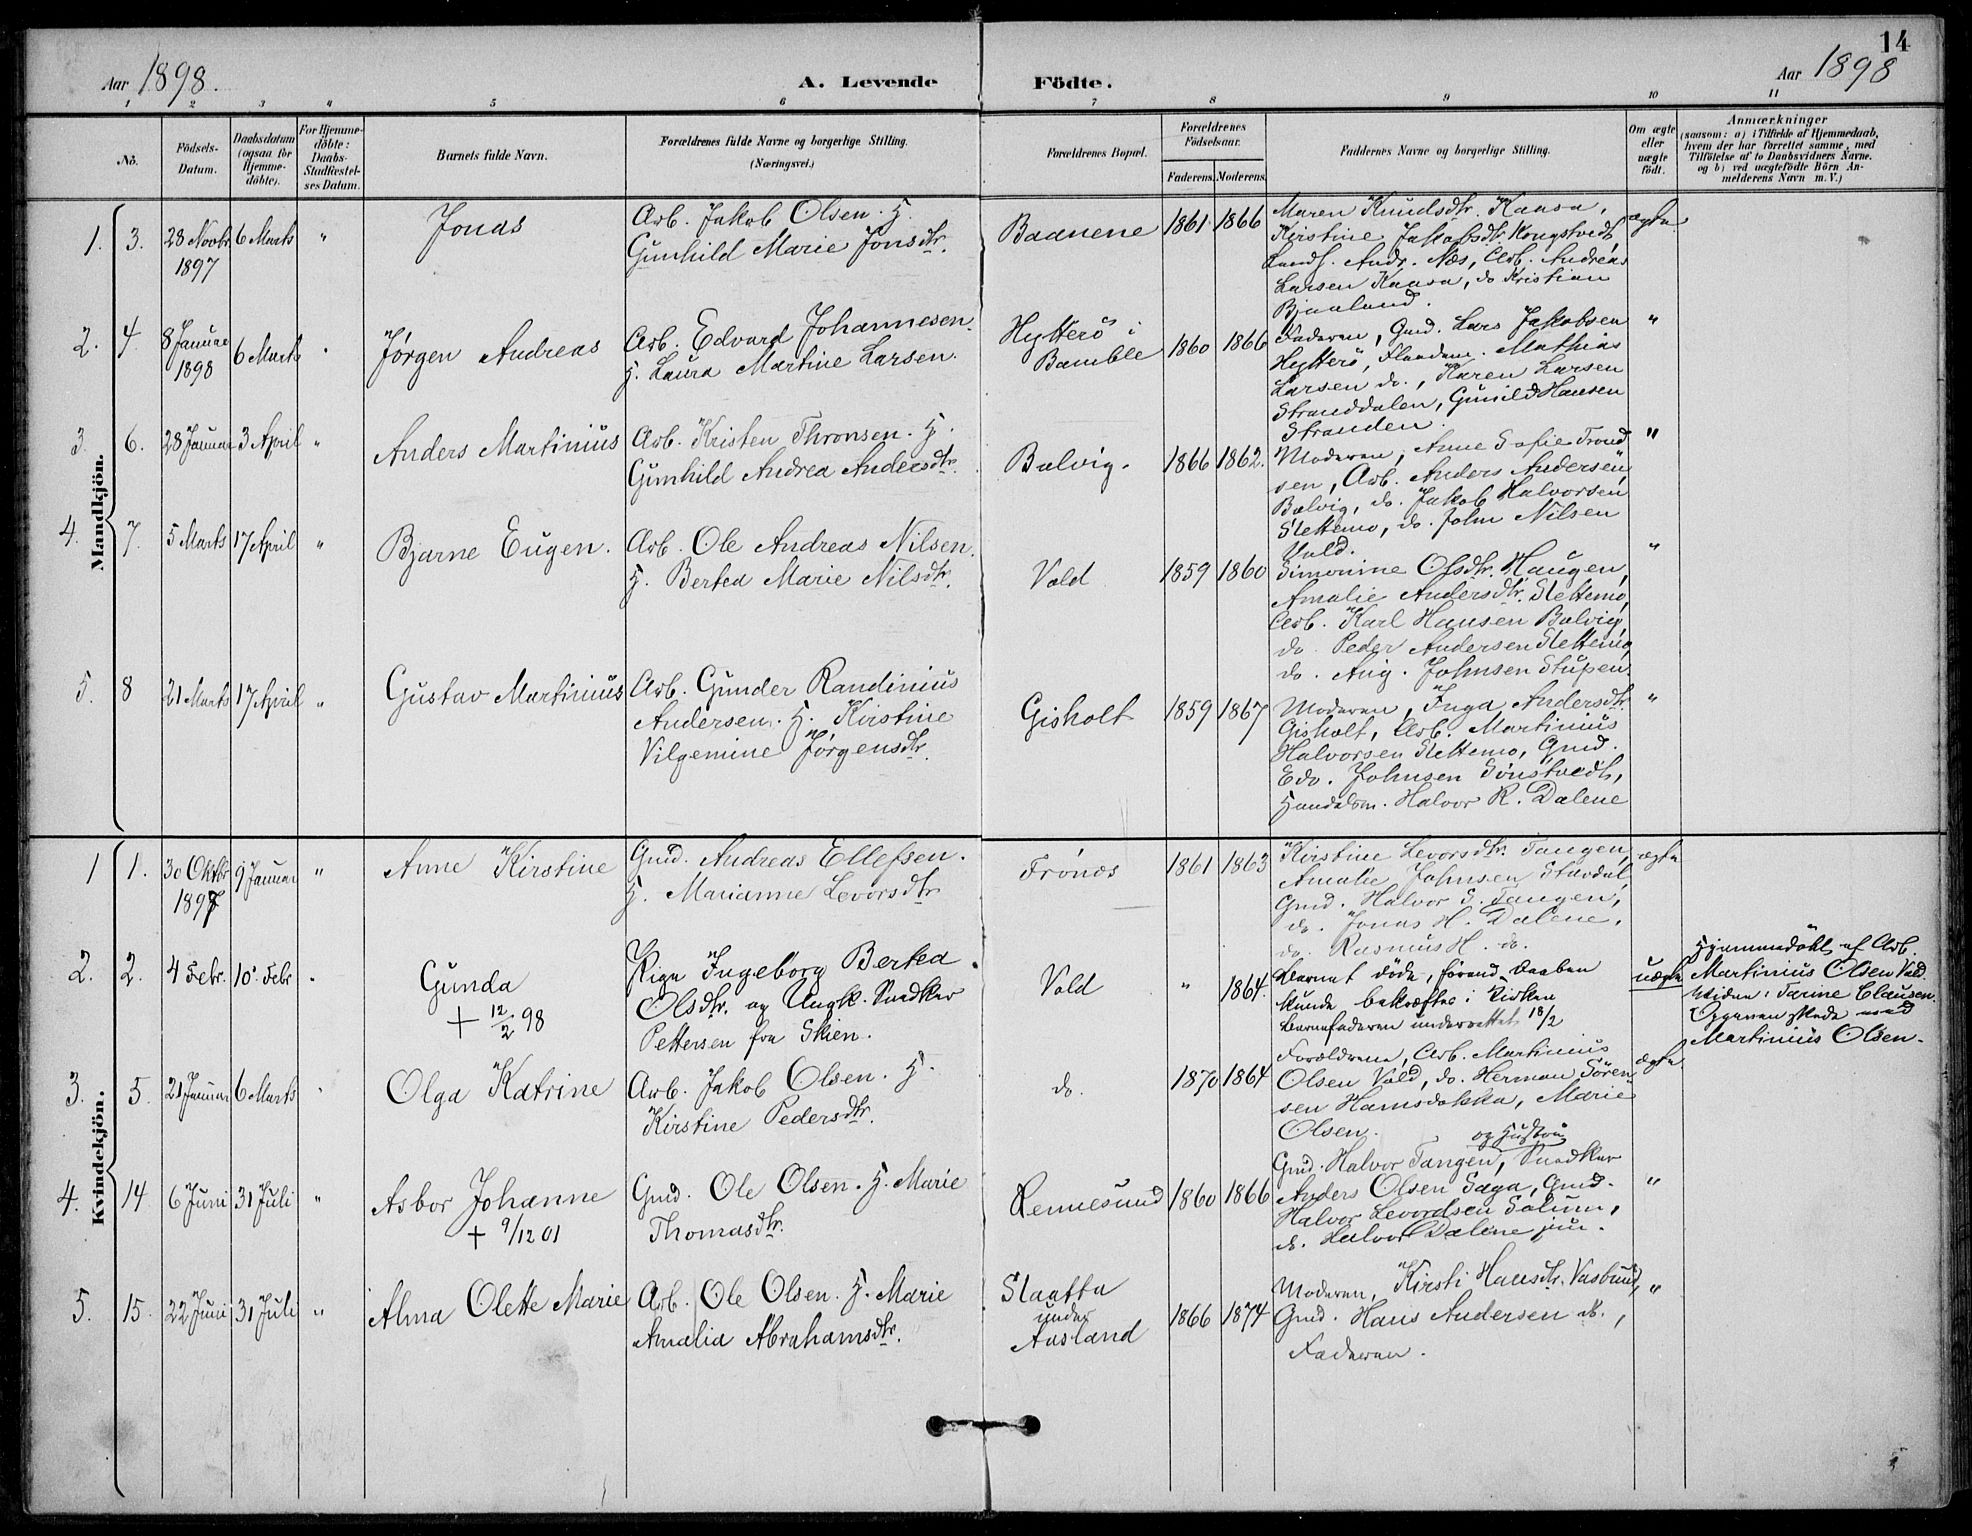 14
Aar 1898.
A. Levende Födte.
Aar 1898
1 2 3 4 5 6 7 8 9 10 11
No.
Födsels-
Datum.
Daabsdatum
(ogsaa for
Hjemme-
döbte).
For Hjemme-
döbte:
Daabs-
Stadfæstel-
ses Datum.
Barnets fulde Navn.
Forældrenes fulde Navne og borgerlige Stilling.
(Næringsvei.)
Forældrenes Bopæl.
Forældrenes
Födselsaar.
Faderens. Moderens.
Faddernes Navne og borgerlige Stilling.
Om ægte
eller
uægte
födt.
Anmærkninger
(saasom: a) i Tilfælde af Hjemmedaab,
hvem der har forrettet samme, med
Tilföielse af to Daabsvidners Navne.
og b) ved uægtefödte Börn An-
melderens Navn m. V.)
Mandkjön.
1. 3. 28 Novbr 1897 6 Marts " Jonas
Arb. Jakob Olsen. H.
Gunhild Marie Jonsdtr.
Baanene 1861 1866
Maren Knudsdtr. Kaasa,
Kirstine Jakobsdtr. Kongstvedt,
Landh. Andr. Næs, Arb. Andreas
Larsen Kaasa, do Kristian
Bjaaland.
ægte
2. 4. 8 Januar 1898 6 Marts " Jørgen Andreas
Arb. Edvard Johannesen.
H. Laura Martine Larsen.
Hytterö i
Bamble 1860 1866
Faderen, Gmd. Lars Jakobsen
Hytterö, Mathias
Larsen do., Karen Larsen
Stranddalen, Gunild Hansen
Stranden.
"
3. 6. 28 Januar 3 April " Anders Martinius
Arb. Kristen Thronsen. H.
Gunhild Andrea Andersdtr.
Bælvig. 1866 1862.
Moderen, Anne Sofie Trond
sen, Arb. Anders Andersen
Bælvig, do. Jakob Halvorsen
Slettemo, do. John Nilsen
Vald.
"
4. 7. 5 Marts 17 April " Bjarne Eugen.
Arb. Ole Andreas Nilsen.
H. Bertea Marie Nilsdtr.
Vald 1859 1860
Simonine Olsdtr. Haugen,
Amalie Andersdtr. Slettemo,
Arb. Karl Hansen Bælvig,
do. Peder Andersen Slettemo,
do. Aug. Johnsen Stupen.
"
5. 8 21 Marts 17 April " Gustav Martinius
Arb. Gunder Randinius
Andersen. H. Kirstine
Vilgemine Jørgensdtr.
Gisholt 1859 1867
Moderen, Inga Andersdtr.
Gisholt, Arb. Martinius
Halvorsen Slettemo, Gmd.
Edv. Johnsen Sönstvedt,
Handelsm. Halvor R. Dalene
"
Kvindekjön.
1 1. 30 Oktbr 1897 9 Januar " Anne Kirstine
Gmd. Andreas Ellefsen.
H. Marianne Levorsdtr
Frönes 1861 1863
Kirstine Levorsdtr. Tangen,
Amalie Johnsen Stavdal,
Gmd. Halvor S. Tangen,
do. Jonas H. Dalene,
do. Rasmus H. do.
ægte
2. 2. 4 Febr. 10 Febr " Gunda
+ 12/2 98
Pige Ingeborg Bertea
Olsdtr. og Ungk. Snedker
Pettersen fra Skien.
Vald " 1864.
Barnet døde, førend Daaben
kunde bekræftes i Kirken
Barnefaderen underrettet 18/2
uægte
Hjemmedöbt af Arb.
Martinius Olsen Vald.
Vidne: Tarine Clausen.
Opgaven skede ved
Martinius Olsen.
3. 5. 21 Januar 6 Marts " Olga Katrine
Arb. Jakob Olsen. H.
Kirstine Pedersdtr.
do. 1870 1864
Forældrene, Arb. Martinius
Olsen Vald, do. Herman Sören
sen Hamsdokka, Marie
Olsen.
ægte
4. 14 6 Juni 31 Juli " Asbor Johanne
+ 9/12 01
Gmd. Ole Olsen. H. Marie
Thomasdtr.
Rennesund 1860 1866
og Hustru
Gmd. Halvor Tangen, Snedker
Anders Olsen Saga, Gmd.
Halvor Levordsen Solum,
do. Halvor Dalene jun.
"
5. 15. 22 Juni 31 Juli " Alma Olette Marie
Arb. Ole Olsen. H. Marie
Amalia Abrahamsdtr.
Slaatta
under
Aasland 1866 1874
Moderen, Kirsti Hansdtr. Vasbund,
Gmd. Hans Andersen do.,
Faderen.
"